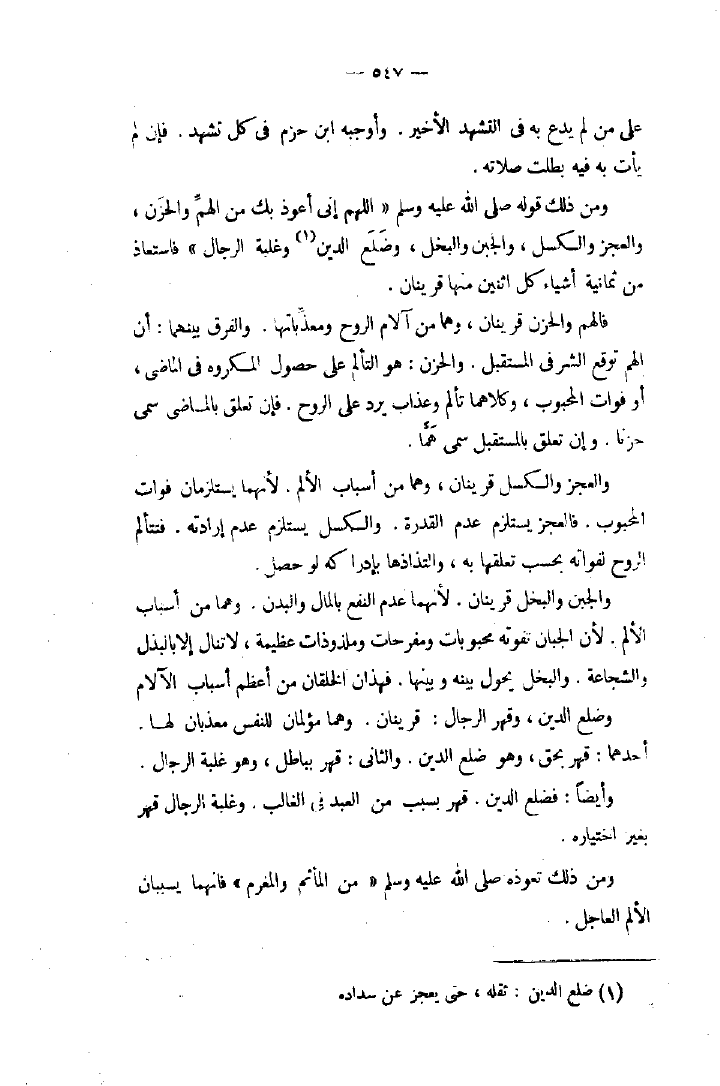 — ٥٤٧ —
على من لم يدع به فى التشهد الأخير . وأوجبه ابن حزم فى كل تشهد . فإن لم
يأت به فيه بطلت صلاته .
ومن ذلك قوله صلى الله عليه وسلم « اللهم إنى أعوذ بك من الهمِّ والحزَن ،
والعجز والكسل ، والجبن والبخل ، وضَلَع الدين(١) وغلبة الرجال » فاستعاذ
من ثمانية أشياء كل اثنين منها قرينان .
فالهم والحزن قرينان ، وهما من آلام الروح ومعذِّباتها . والفرق بينهما : أن
الهم توقع الشر فى المستقبل . والحزن : هو التألم على حصول المكروه فى الماضى ،
أو فوات المحبوب ، وكلاهما تألم وعذاب يرد على الروح . فإن تعلق بالماضى سمى
حزنا . وإن تعلق بالمستقبل سمى هَمًّا .
والعجز والكسل قرينان ، وهما من أسباب الألم . لأنهما يستلزمان فوات
المحبوب . فالعجز يستلزم عدم القدرة . والكسل يستلزم عدم إرادته . فتتألم
الروح لفواته بحسب تعلقها به ، والتذاذها بإدراكه لو حصل .
والجبن والبخل قرينان . لأنهما عدم النفع بالمال والبدن . وهما من أسباب
الألم . لأن الجبان تفوته محبوبات ومفرحات وملذوذات عظيمة ، لاتنال إلابالبذل
والشجاعة . والبخل يحول بينه وبينها . فهذان الخلقان من أعظم أسباب الآلام
وضلع الدين ، وقهر الرجال : قرينان . وهما مؤلمان للنفس معذبان لها .
أحدهما : قهر بحق ، وهو ضلع الدين . والثانى : قهر بباطل ، وهو غلبة الرجال .
وأيضاً : فضلع الدين . قهر بسبب من العبد فى الغالب . وغلبة الرجال قهر
بغير اختياره .
ومن ذلك تعوذه صلى الله عليه وسلم « من المأثم والمغرم » فانهما يسببان
الألم العاجل .
(١) ضلع الدين : ثقله ، حتى يعجز عن سداده